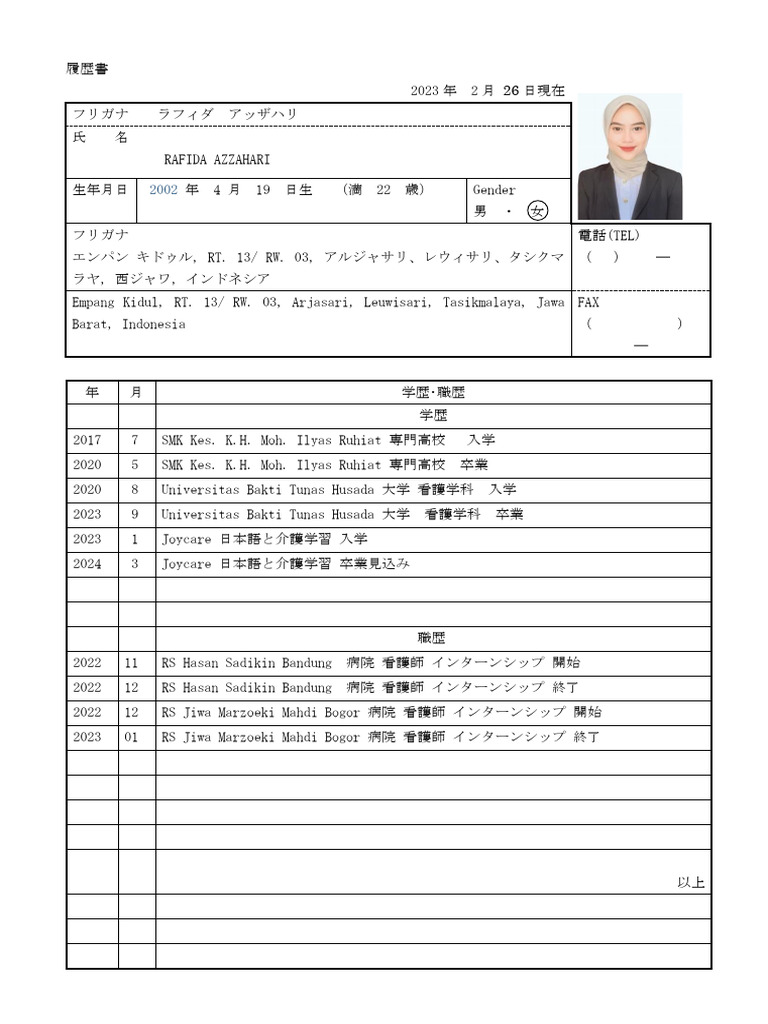 履歴書
2023 年 2 月 26 日現在
フリガナ ラフィダ アッザハリ
氏 名
RAFIDA AZZAHARI
生年月日 2002 年 4 月 19 日生 (満 22 歳) Gender
男 ・ 女
フリガナ 電話(TEL)
エンパン キドゥル, RT. 13/ RW. 03, アルジャサリ、レウィサリ、タシクマ ( ) ―
ラヤ, 西ジャワ, インドネシア
Empang Kidul, RT. 13/ RW. 03, Arjasari, Leuwisari, Tasikmalaya, Jawa FAX
Barat, Indonesia ( )
―
年 月 学歴・職歴
学歴
2017 7 SMK Kes. K.H. Moh. Ilyas Ruhiat 専門高校 入学
2020 5 SMK Kes. K.H. Moh. Ilyas Ruhiat 専門高校 卒業
2020 8 Universitas Bakti Tunas Husada 大学 看護学科 入学
2023 9 Universitas Bakti Tunas Husada 大学 看護学科 卒業
2023 1 Joycare 日本語と介護学習 入学
2024 3 Joycare 日本語と介護学習 卒業見込み
職歴
2022 11 RS Hasan Sadikin Bandung 病院 看護師 インターンシップ 開始
2022 12 RS Hasan Sadikin Bandung 病院 看護師 インターンシップ 終了
2022 12 RS Jiwa Marzoeki Mahdi Bogor 病院 看護師 インターンシップ 開始
2023 01 RS Jiwa Marzoeki Mahdi Bogor 病院 看護師 インターンシップ 終了
以上